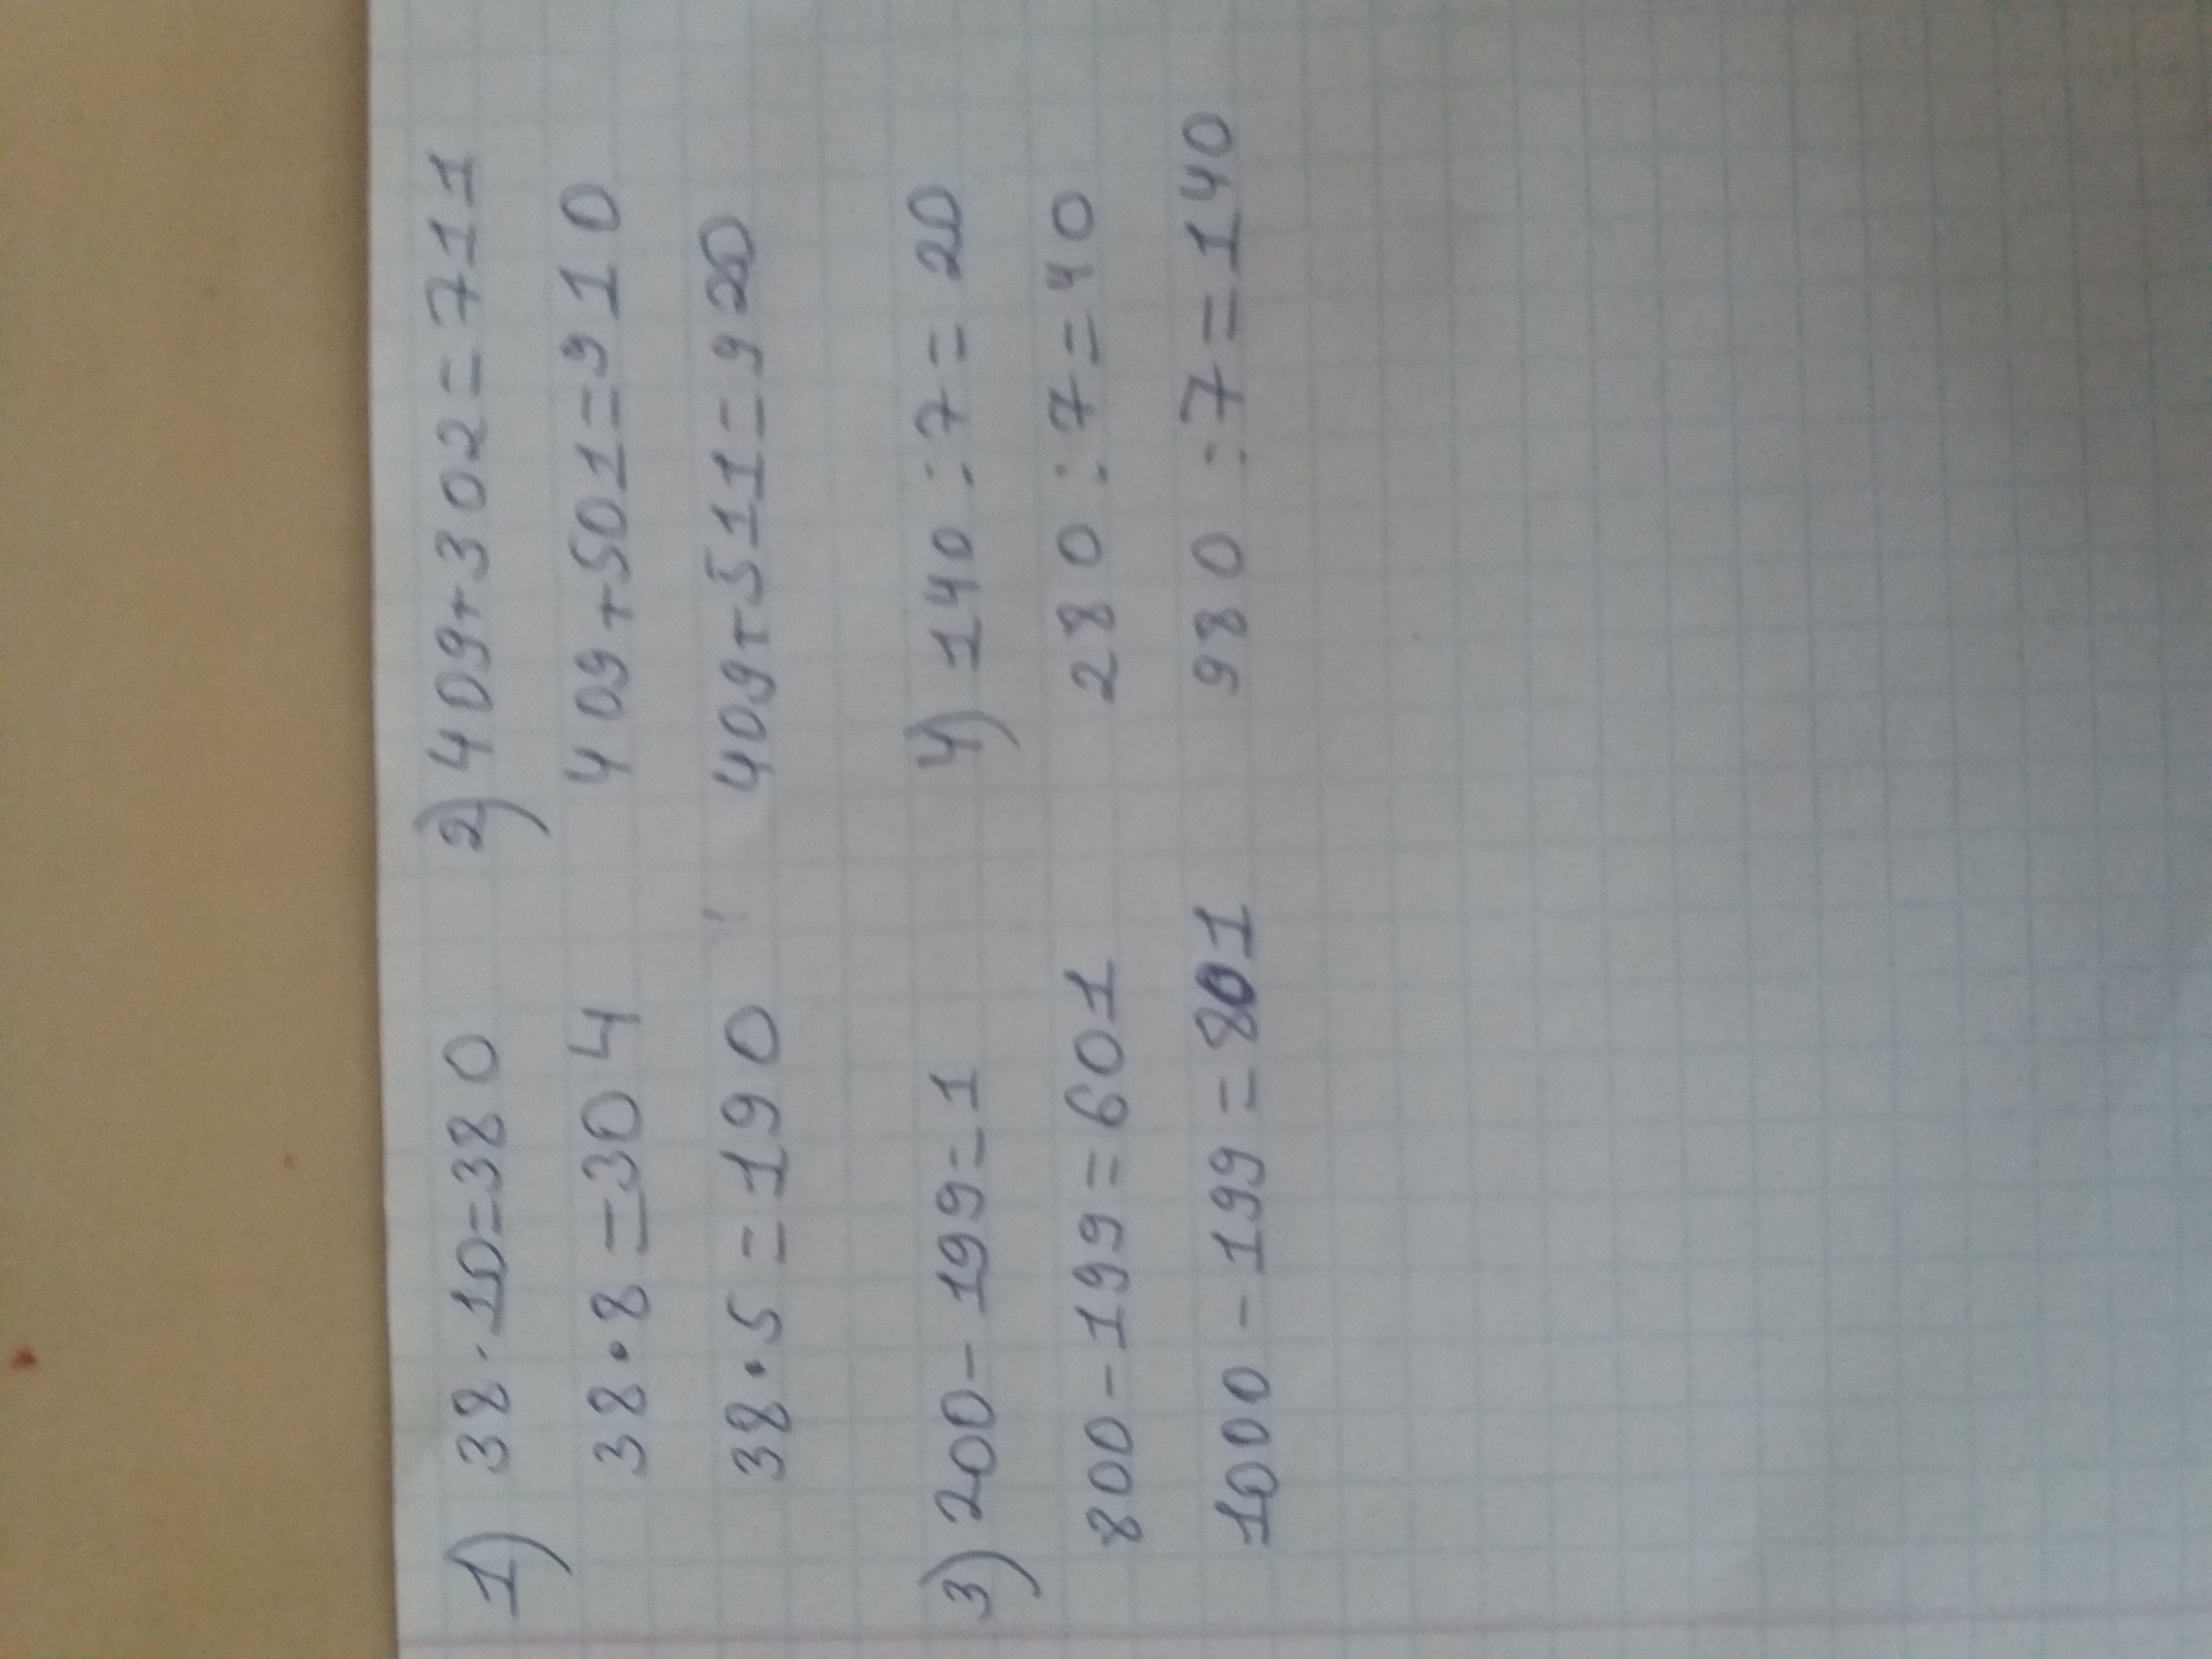 1) 38·10=380 2) 409+302=711
38·8=304 409+501=910
38·5=190 409+511=920
3) 200-199=1 4) 140:7=20
800-199=601 280:7=40
1000-199=801 980:7=140